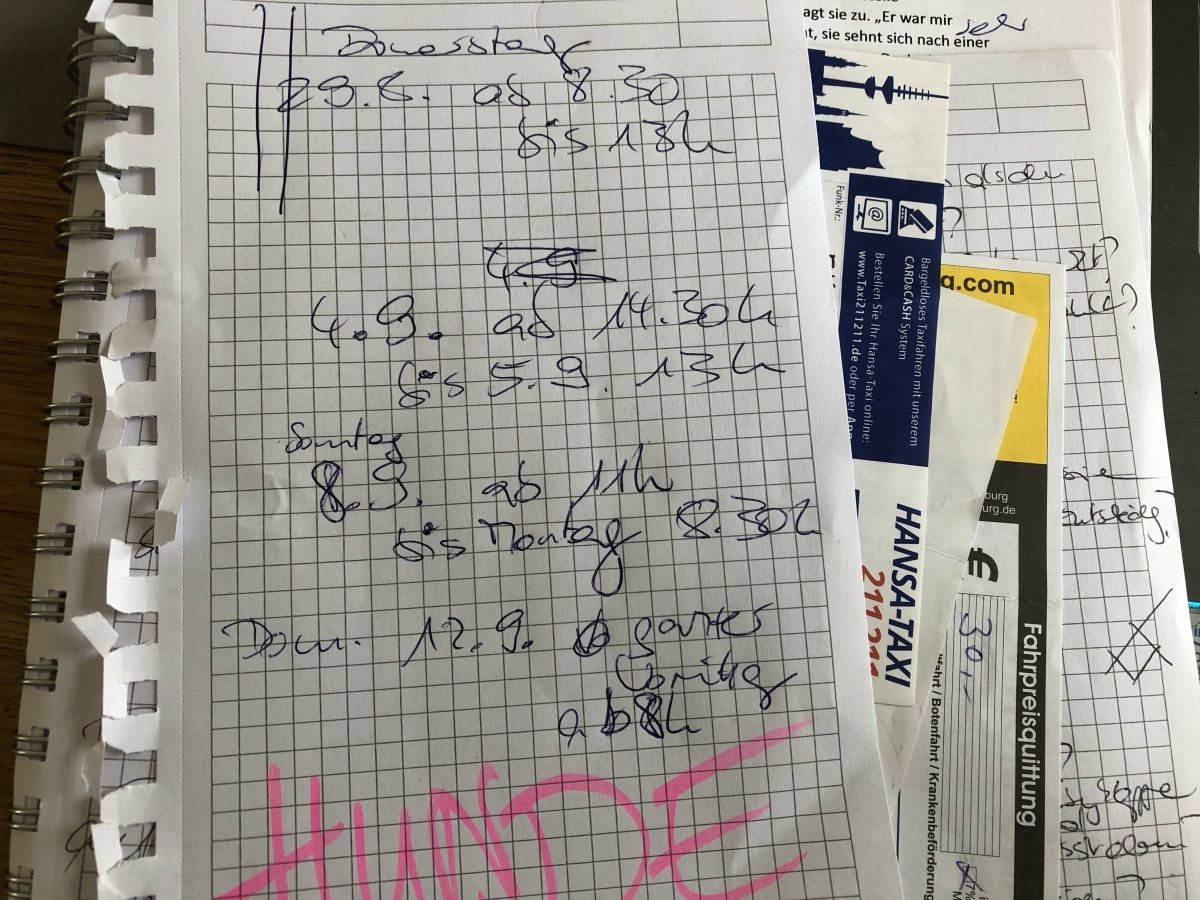 Donnerstag
29.8. ab 8.30
bis 13h
4.9
4.9. ab 14.30h
bis 5.9. 13h
Sonntag
8.9. ab 11h
bis Montag 8.30h
Donn. 12.9. ganzer
Vormittag
ab 8h
HUNDE
agt sie zu. „Er war mir sehr
t, sie sehnt sich nach einer
Funk-Nr.:
Bargeldloses Taxifahren mit unserem
CARD&CASH System
Bestellen Sie Ihr Hansa-Taxi online:
www.Taxi211211.de oder per App
HANSA-TAXI
211 211
a.com
burg
urg.de
€
30,-
Fahrpreisquittung
fahrt / Botenfahrt / Krankenbeförderung
7%